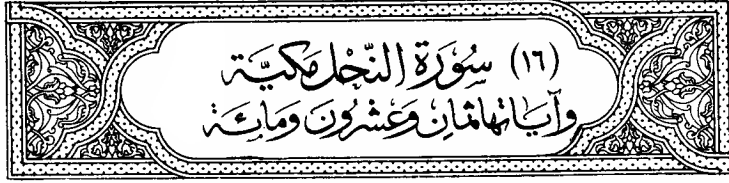 (١٦) سُورَةُ النَّحْلِ مَكِيَّة
وَآيَاتُهَا ثَمَانٍ وَعِشْرُونَ وَمَائَة